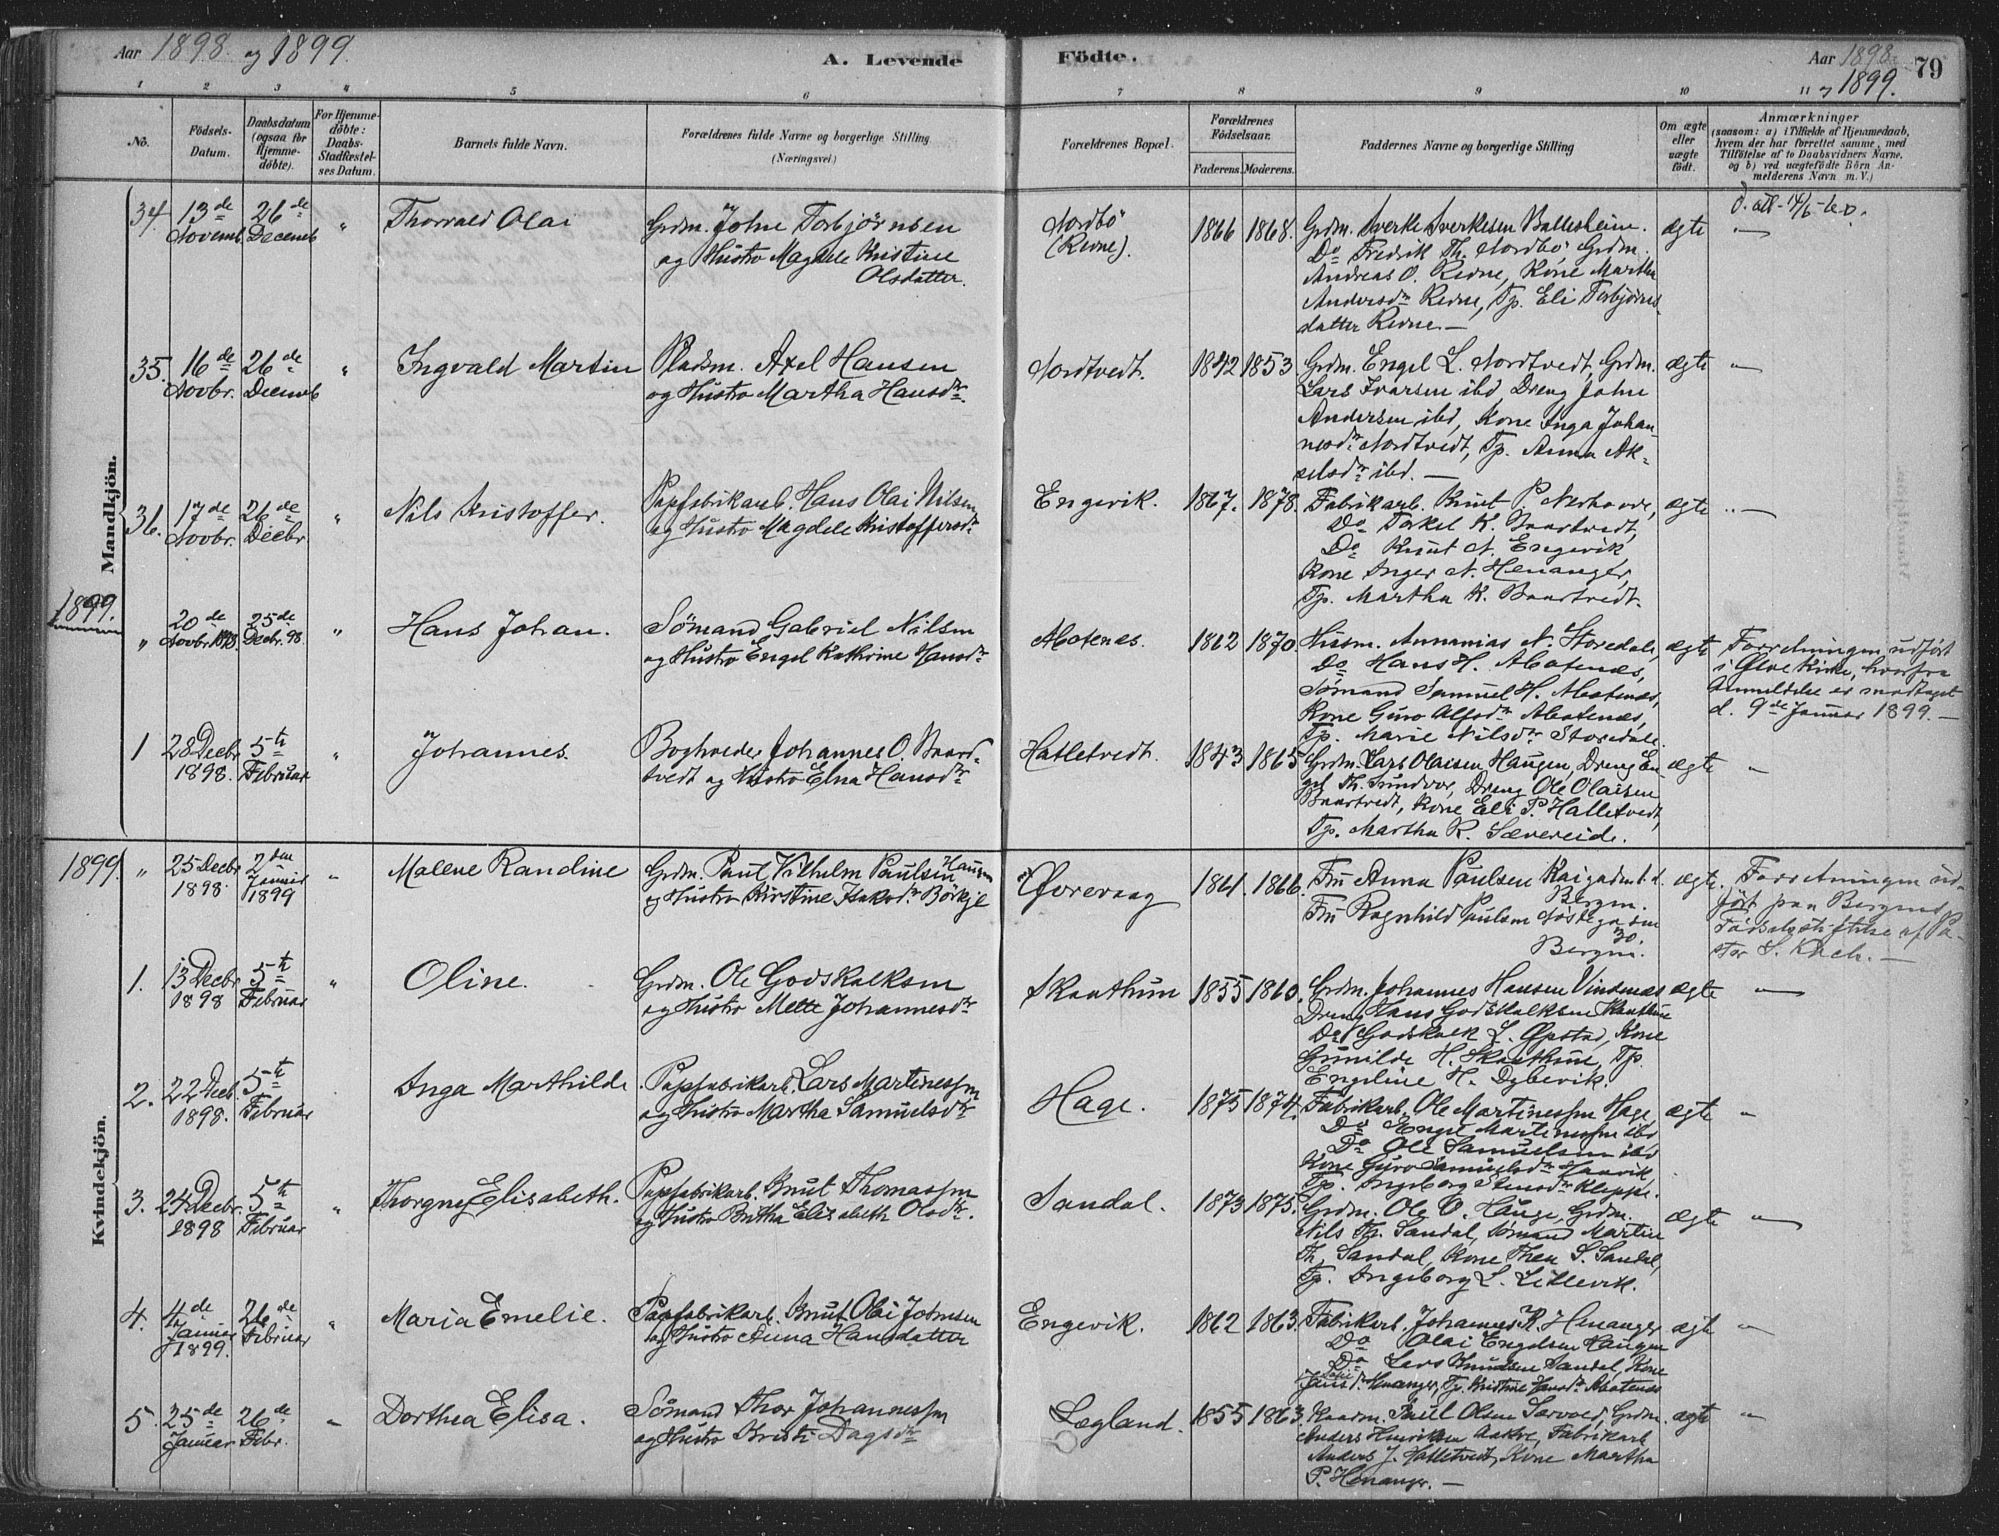 Aar 1898 og 1899.
A. Levende
Födte.
Aar 1898
1899.
79
1 2 3 4 5 6 7 8 9 10 11
No.
Födsels-
Datum.
Daabsdatum
(ogsaa for
Hjemme-
döbte).
For Hjemme-
döbte:
Daabs-
Stadfæstel-
ses Datum.
Barnets fulde Navn.
Forældrenes fulde Navne og borgerlige Stilling
(Næringsvei.)
Forældrenes Bopæl.
Forældrenes
Födselsaar.
Faderens. Moderens.
Faddernes Navne og borgerlige Stilling
Om ægte
eller
uægte
födt.
Anmærkninger
(saasom: a) i Tilfælde af Hjemmedaab,
hvem der har forrettet samme, med
Tilföielse af to Daabsvidners Navne,
og b) ved uægtefödte Börn An-
melderens Navn m. V.)
Mandkjön.
34. 13de Novemb. 26de Decemb. " Thorvald Olai
Grdm. John Torbjørnsen
og Hustro Magdele Kristine
Olsdatter.
Nordbö
(Revne).
1866 1868.
Grdm. Sverke Sverkesen Ballesheim.
Do Fredrik Th. Nordbö Grdm.
Andreas O. Revne, Kone Martha
Andersdr Revne, Tp. Eli Torbjörns
datter Revne.—
ægte
35. 16de Novbr. 26de Decemb. " Ingvald Martin
Pladsm. Axel Hansen
og Hustro Martha Hansdr.
Nordtvedt.
1842 1853
Grdm. Engel L. Nordtvedt, Grdm.
Lars Ivarsen ibd, Dreng John
Andersen ibd, Kone Inga Johan-
nesdr Nordtvedt, Tp. Anna Ak-
selsdr ibd.—
ægte "
36. 17de Novbr. 26de Decbr. " Nils Kristoffer.
Papfabrikarb. Hans Olai Nilsen
og Hustro Magdele Kristoffersdr
Engevik.
1867. 1878.
Fabrikarb. Knut P. Nerhovde,
Do Torkel K. Baartvedt,
Do Knut N. Engevik,
Kone Inger N. Henanger,
Tp. Martha K. Baartvedt.
ægte
1899.
" 20de Novbr. 1898. 25de Decbr. 98. " Hans Johan.
Sömand Gabriel Nilsen
og Hustro Engel Kathrine Hansdr
Abotenæs.
1862 1870
Husm. Annanias N. Storedale,
Do Hans H. Abotenæs,
Sömand Samuel H. Abotenæs,
Kone Guro Alfsdr Abotenæs,
Tp. Marie Nilsdr Storedale.
ægte
Forretningen udfört
i Kirke, hvorfra
Anmeldelse er modtaget
d. 9de Januar 1899.—
1 28 Decbr 1898. 5te Februar " Johannes.
Boghveder Johannes O. Baard-
tvedt og Hustro Elna Hansdr
Hatletvedt.
1843 1865
Grdm. Lars Olaisen Haugen, Dreng En-
gel Th. Sundvor, Dreng Ole Olaisen
Baartvedt, Kone Eli P. Hatletvedt,
Tp. Martha R. Sævereide.
ægte "
Kvindekjön.
1899. " 25 Decbr 1898. 2den Januar 1899 " Malene Randine
Grdm. Paul Vilhelm Paulsen Haugen
og Hustro Kirstine Isaksdr Börkje
Øvrevaag
1861. 1866.
Fru Anna Paulsen
Bergen.
Fru Ragnhild Paulsen
Bergen.
ægte.
Forretningen ud-
fört paa Bergens
Födselsstiftelse af Pa-
stor S. Koch.—
1. 13 Decbr 1898 5te Februar " Oline.
Grdm. Ole Godskalksen
og Hustro Mette Johannesdr
Skaathun
1855 1860.
Grdm. Johannes Hansen Vindenæs
Dreng Hans Godskalksen Skaathun
Do Godskalk L. Øpstad, Kone
Gunilde H. Skaathun, Tp.
Engeline H. Dybevik.
ægte
2. 22 Decb. 1898. 5te Februar Inga Marthilde
Papfabrikarb. Lars Martinessen
og Hustro Martha Samuelsdr
Hage.
1875 1874.
Fabrikarb. Ole Martinessen Hage,
Do Engel Martinessen ibd
Do Ole Samuelsen ibd
Kone Guro Samuelsdr Haavik,
Tp. Ingeborg Stensdr Kleppe.
ægte "
3. 24 Decbr. 1898 5te Februar " Thorgny Elisabeth.
Papfabrikarb. Knut Thomassen
og Hustro Britha Elisabeth Olsdr.
Sandal.
1873 1875.
Grdm. Ole O. Hauge, Grdm.
Nils Th. Sandal, Sömand Martin
Th. Sandal, Kone Thea S. Sandal,
Tp. Ingeborg L. Lillevik.
ægte
4. 4de Januar 1899. 26de Februar " Maria Emelie.
Papfabrikarb. Knut Olai Johnsen
og Hustro Anna Hansdatter
Engevik.
1862 1863.
Fabrikarb. Johannes K. Henanger
Do Olai Engelsen Haugen
Do Lars Knudsen Sandal, Kone
Jensdr Henanger, Tp. Kristine Hansdr Abotenæs
ægte "
5. 25de Januar 26de Febr. " Dorthea Elisa.
Sömand Thor Johannessen
og Hustro Kristi Dagsdr
Lægland.
1855 1863.
Poul Olsen Sørvold, Grdm.
Anders Henriksen Aakre, Fabrikarb
Anders J. Hatletvedt, Kone Martha
P. Henanger.—
ægte "